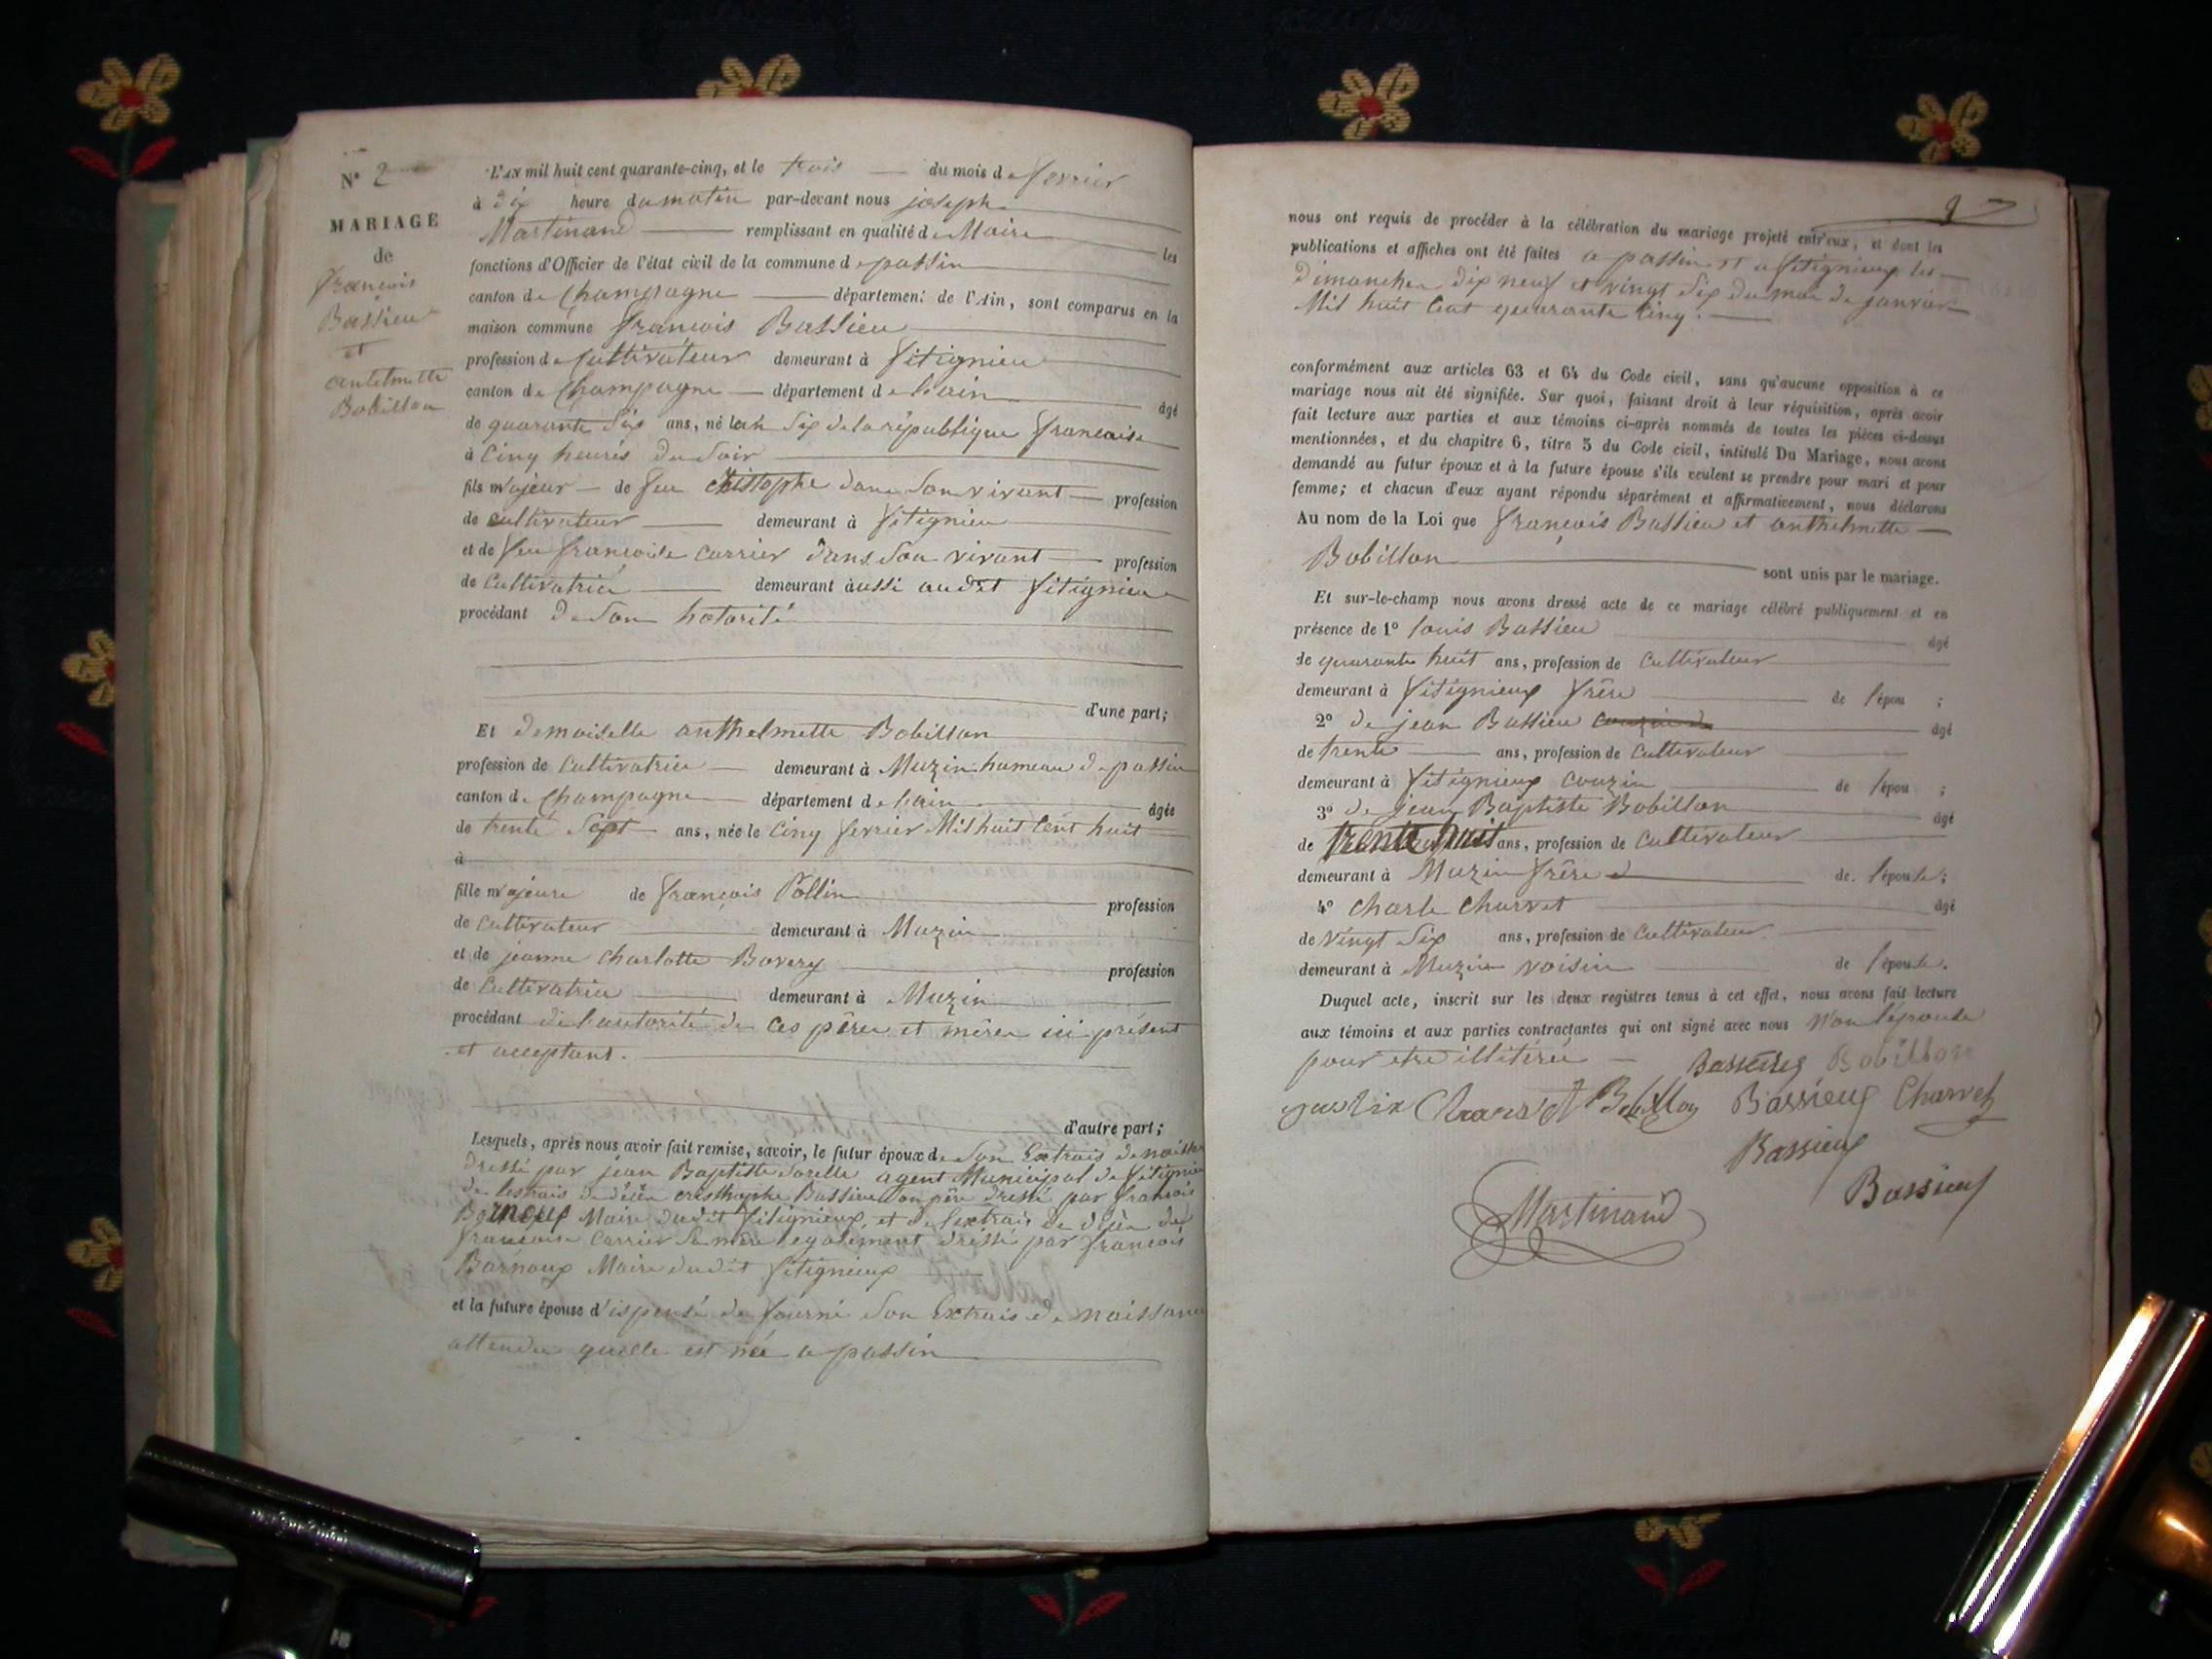 N° 2
MARIAGE
de
françois
Bassieu
et
antelmette
Bobillon
L'AN mil huit cent quarante-cinq, et le trois du mois de fevrier
à dix heure du matin par-devant nous joseph
Martinand remplissant en qualité de Maire les
fonctions d'Officier de l'état civil de la commune de passin
canton de Champagne département de l'Ain, sont comparus en la
maison commune françois Bassieu
profession de Cultivateur demeurant à fitignieu
canton de Champagne département de lain âgé
de quarante six ans, né lan six de la république francaise
à Cinq heures du Soir
fils majeur de feu Christophe dans Son vivant profession
de cultivateur demeurant à fitignieu
et de feu françoise carrier dans Son vivant profession
de Cultivatrice demeurant aussi audit fitignieu
procédant de Son
d'une part;
Et demoiselle anthelmette Bobillon
profession de Cultivatrice demeurant à Muzin hameau de passin
canton de Champagne département de lain âgée
de trente Sept ans, née le Cinq fevrier Mil huit Cent huit
à
fille majeure de françois Pollin
profession
de Cultivateur demeurant à Muzin
et de jeanne Charlotte Bovery
profession
de Cultivatrice demeurant à Muzin
procédant de l'autorité de Ces père et mère ici présent
et acceptant.
d'autre part;
Lesquels, après nous avoir fait remise, savoir, le futur époux de Son Extrais de
dressé par jean Baptiste agent Municipal de fitignieu
de lestrais de décè cristhophe Bassieu Son père dressé par francois
Maire dudit fitignieux, et de lextrais de décè de
francoise Carrier Sa mère egalement dressé par francois
Barnoux Maire dudit fitignieux
et la future épouse d'ispensé de fourni Son Extrais de naissance
attendu quelle est née a passin
nous ont requis de procéder à la célébration du mariage projeté entr'eux, et dont les
publications et affiches ont été faites a passin et a fitignieux les
dimanches dix neuf et vingt six du moi de janvier
Mil huit Cent quarante Cinq.
conformément aux articles 63 et 64 du Code civil, sans qu'aucune opposition à ce
mariage nous ait été signifiée. Sur quoi, faisant droit à leur réquisition, après avoir
fait lecture aux parties et aux témoins ci-après nommés de toutes les pièces ci-dessus
mentionnées, et du chapitre 6, titre 5 du Code civil, intitulé Du Mariage, nous avons
demandé au futur époux et à la future épouse s'ils veulent se prendre pour mari et pour
femme; et chacun d'eux ayant répondu séparément et affirmativement, nous déclarons
Au nom de la Loi que françois Bassieu et anthelmette
Bobillon
sont unis par le mariage.
Et sur-le-champ nous avons dressé acte de ce mariage célébré publiquement et en
présence de 1° louis Bassieu âgé
de quarante huit ans, profession de Cultivateur
demeurant à fitignieux frère de l'épou ;
2° de jean Bassieu âgé
de trente ans, profession de Cultivateur
demeurant à fitignieux couzin de l'épou ;
3° de jean Baptiste Bobillon âgé
de trente huit ans, profession de Cultivateur
demeurant à Muzin frère de l'épouse;
4° Charle Charvet âgé
de vingt Six ans, profession de Cultivateur
demeurant à Muzin voisin de l'épouse.
Duquel acte, inscrit sur les deux registres tenus à cet effet, nous avons fait lecture
aux témoins et aux parties contractantes qui ont signé avec nous Non l'épouse
pour etre illitérée Bassieux Bobillon
Bassieux Charvet
Bassieux
Martinand Bassieux